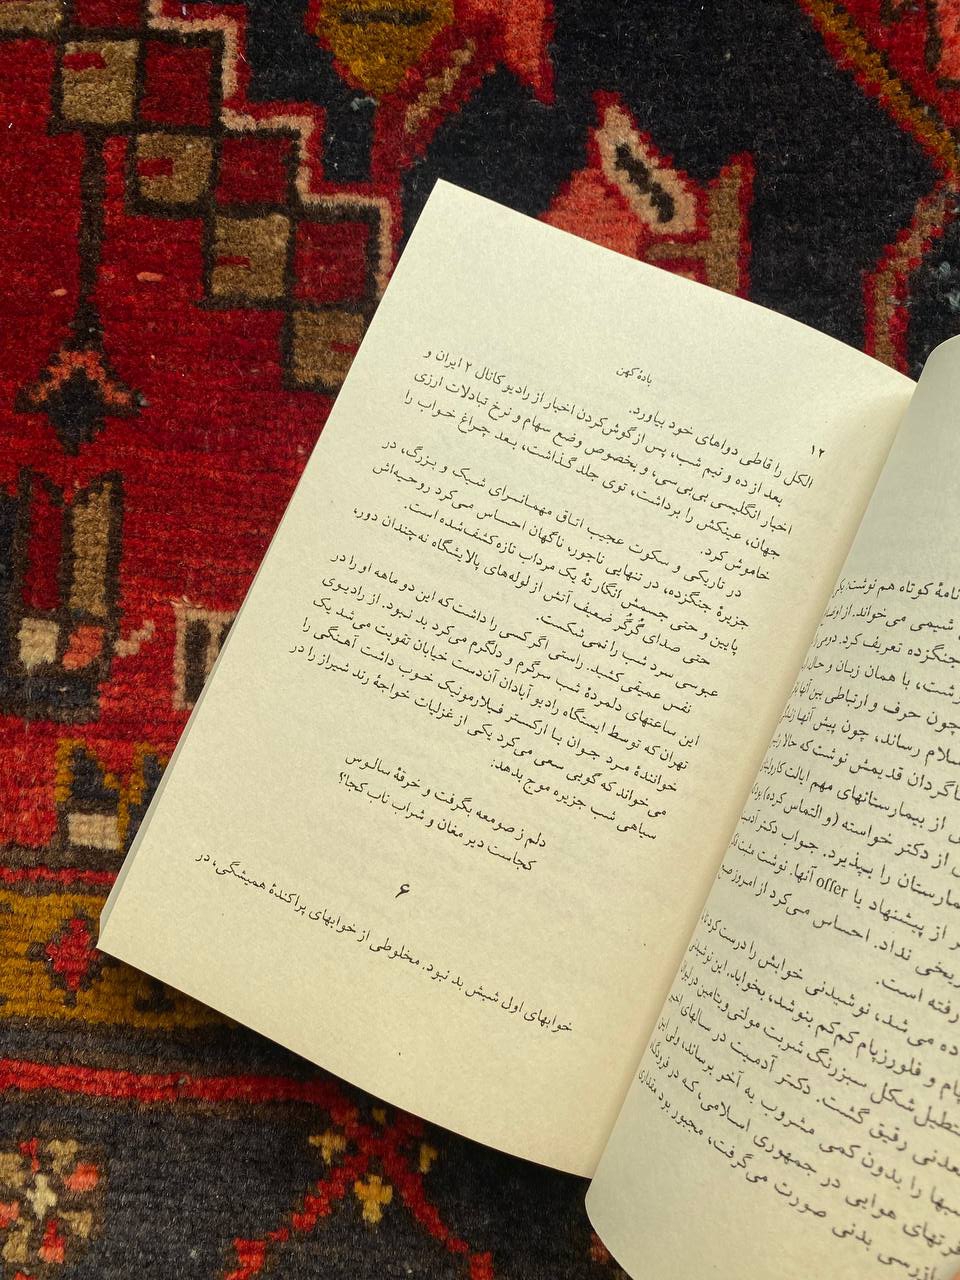 ۱۲
بادهٔ کهن
الکل را قاطی دواهای خود بیاورد.
بعد از ده و نیم شب، پس از گوش‌کردن اخبار از رادیو کانال ۲ ایران و
اخبار انگلیسی بی‌بی‌سی، و بخصوص وضع سهام و نرخ تبادلات ارزی
جهان، عینکش را برداشت، توی جلد گذاشت، بعد چراغ خواب را
خاموش کرد.
در تاریکی و سکوت عجیب اتاق مهمانسرای شیک و بزرگ، در
جزیرهٔ جنگزده، در تنهایی ناجور، ناگهان احساس می‌کرد روحیه‌اش
پایین و حتی جسمش انگار تهٔ یک مرداب تازه کشف‌شده است.
حتی صدای گرگر ضعیف آتش از لوله‌های پالایشگاه نه‌چندان دور،
عبوسی سرد شب را نمی‌شکست.
نفس عمیقی کشید. راستی اگر کسی را داشت که این دو ماهه او را در
این ساعتهای دلمردهٔ شب سرگرم و دلگرم می‌کرد بد نبود. از رادیوی
تهران که توسط ایستگاه رادیو آبادان آن‌دست خیابان تقویت می‌شد یک
خوانندهٔ مرد جوان با ارکستر فیلارمونیک خوب داشت آهنگی را
می‌خواند که گویی سعی می‌کرد یکی از غزلیات خواجهٔ رند شیراز را در
سیاهی شب جزیره موج بدهد:
دلم ز صومعه بگرفت و خرقهٔ سالوس
کجاست دیر مغان و شراب ناب کجا؟
۶
خوابهای اول شبش بد نبود. مخلوطی از خوابهای پراکندهٔ همیشگی، در
نامهٔ کوتاه هم نوشت: یکی
شیمی می‌خواند. از اوضاع
جنگزده تعریف کرد. دومی
با همان زبان و حال
چون حرف و ارتباطی بین آنها
سلام رساند، چون پیش آنها
شاگردان قدیمش نوشت که حالا
از بیمارستانهای مهم ایالت
از دکتر خواسته (و التماس کرده)
بیمارستان را بپذیرد. جواب دکتر
از پیشنهاد یا offer آنها. نوشت
نداد. احساس می‌کرد از امروز صبح
رفته است.
می‌شد، نوشیدنی خوابش را درست کرد تا
و فلورزپام کم‌کم بنوشد، بخوابد. این نوشیدنی
شکل سبزرنگ شربت مولتی‌ویتامین در
معدنی رقیق گشت. دکتر آدمیت در سالهای اخیر
را بدون کمی مشروب به آخر برساند، ولی این
هوایی در جمهوری اسلامی، که در فرودگاه
بازرسی بدنی صورت می‌گرفت، مجبور بود مقداری